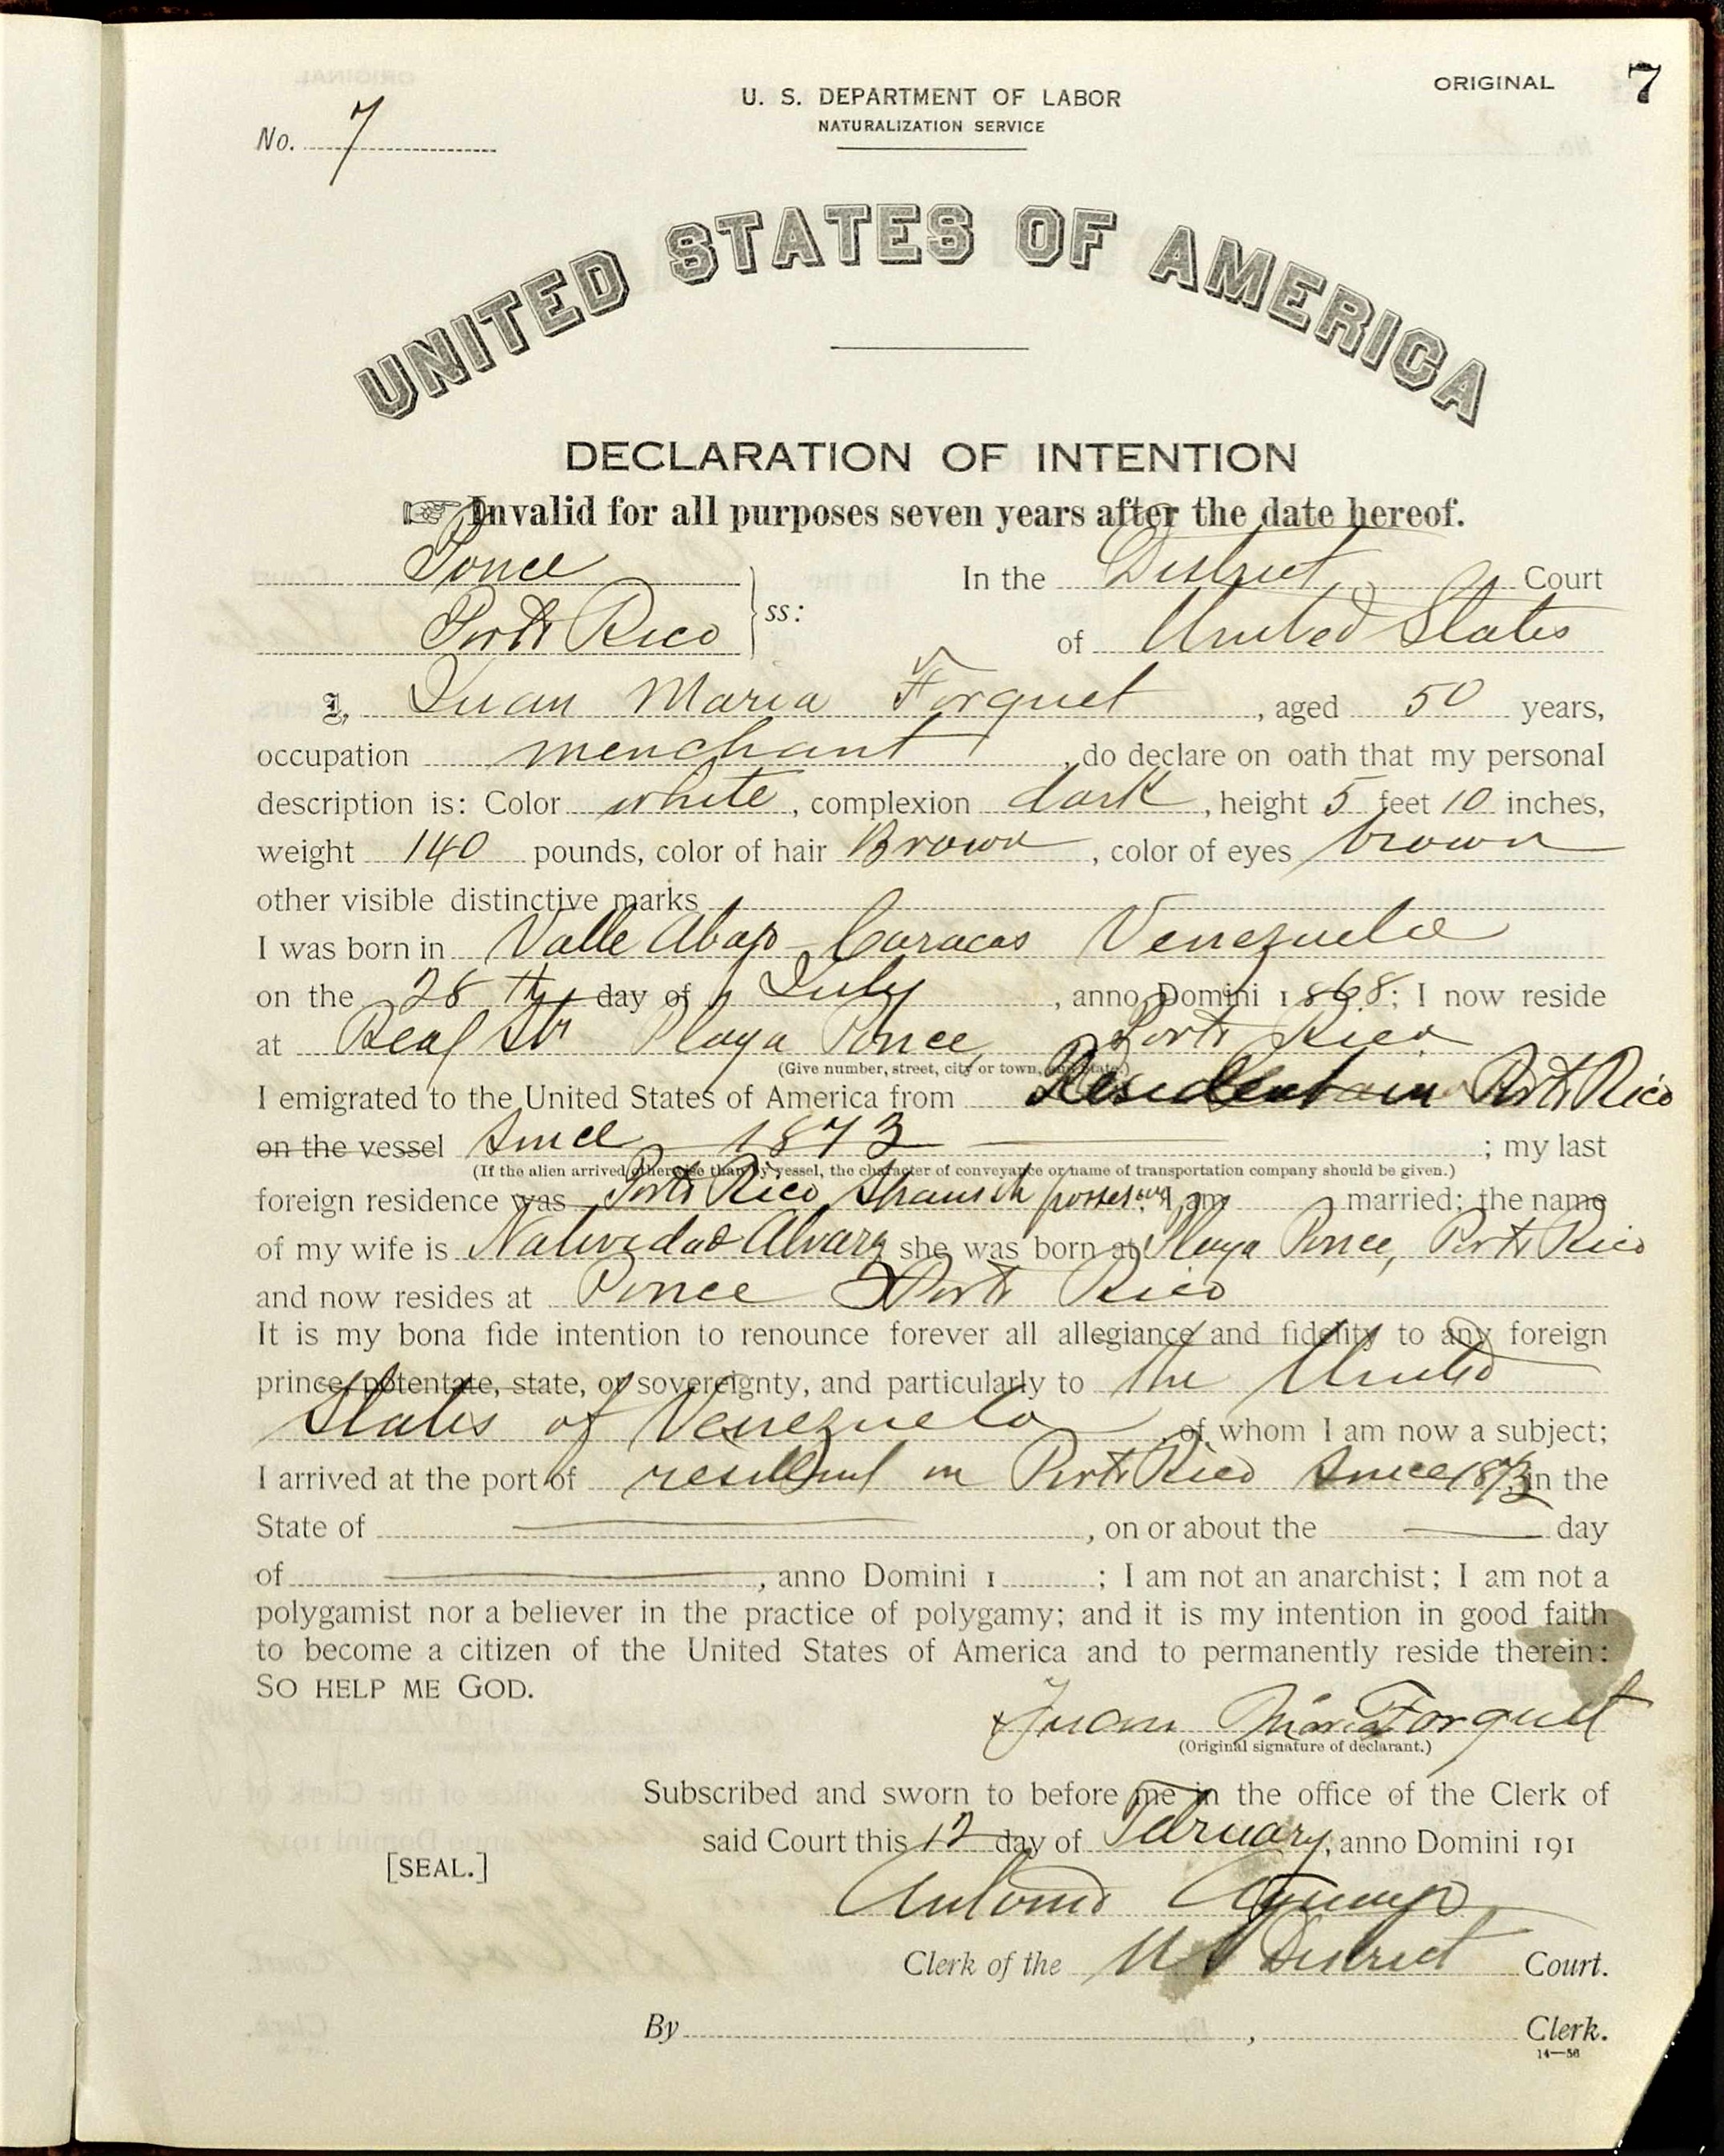 ORIGINAL 7
U. S. DEPARTMENT OF LABOR
NATURALIZATION SERVICE
No. 7
UNITED STATES OF AMERICA
DECLARATION OF INTENTION
☞ Invalid for all purposes seven years after the date hereof.
Ponce In the District Court
Porto Rico ss: of United States
I, Juan Maria Forquet, aged 50 years,
occupation merchant, do declare on oath that my personal
description is: Color white, complexion dark, height 5 feet 10 inches,
weight 140 pounds, color of hair Brown, color of eyes brown
other visible distinctive marks
I was born in Valle Abajo Caracas Venezuela
on the 28th day of July, anno Domini 1868; I now reside
at Real Str Playa Ponce, Porto Rico
(Give number, street, city or town, and State.)
I emigrated to the United States of America from Resident in Porto Rico
on the vessel since 1873; my last
(If the alien arrived otherwise than by vessel, the character of conveyance or name of transportation company should be given.)
foreign residence was Porto Rico, Spanish; I am married; the name
of my wife is Natividad Alvarz she was born at Playa Ponce, Porto Rico
and now resides at Ponce Porto Rico
It is my bona fide intention to renounce forever all allegiance and fidelity to any foreign
prince, potentate, state, or sovereignty, and particularly to the United
States of Venezuela, of whom I am now a subject;
I arrived at the port of resident in Porto Rico since 1873, in the
State of , on or about the day
of , anno Domini 1 ; I am not an anarchist; I am not a
polygamist nor a believer in the practice of polygamy; and it is my intention in good faith
to become a citizen of the United States of America and to permanently reside therein:
SO HELP ME GOD.
Juan Maria Forquet
(Original signature of declarant.)
Subscribed and sworn to before me in the office of the Clerk of
said Court this 12 day of February, anno Domini 191
[SEAL.]
Antonio Aguayo
Clerk of the U S District Court.
By , Clerk.
14—56